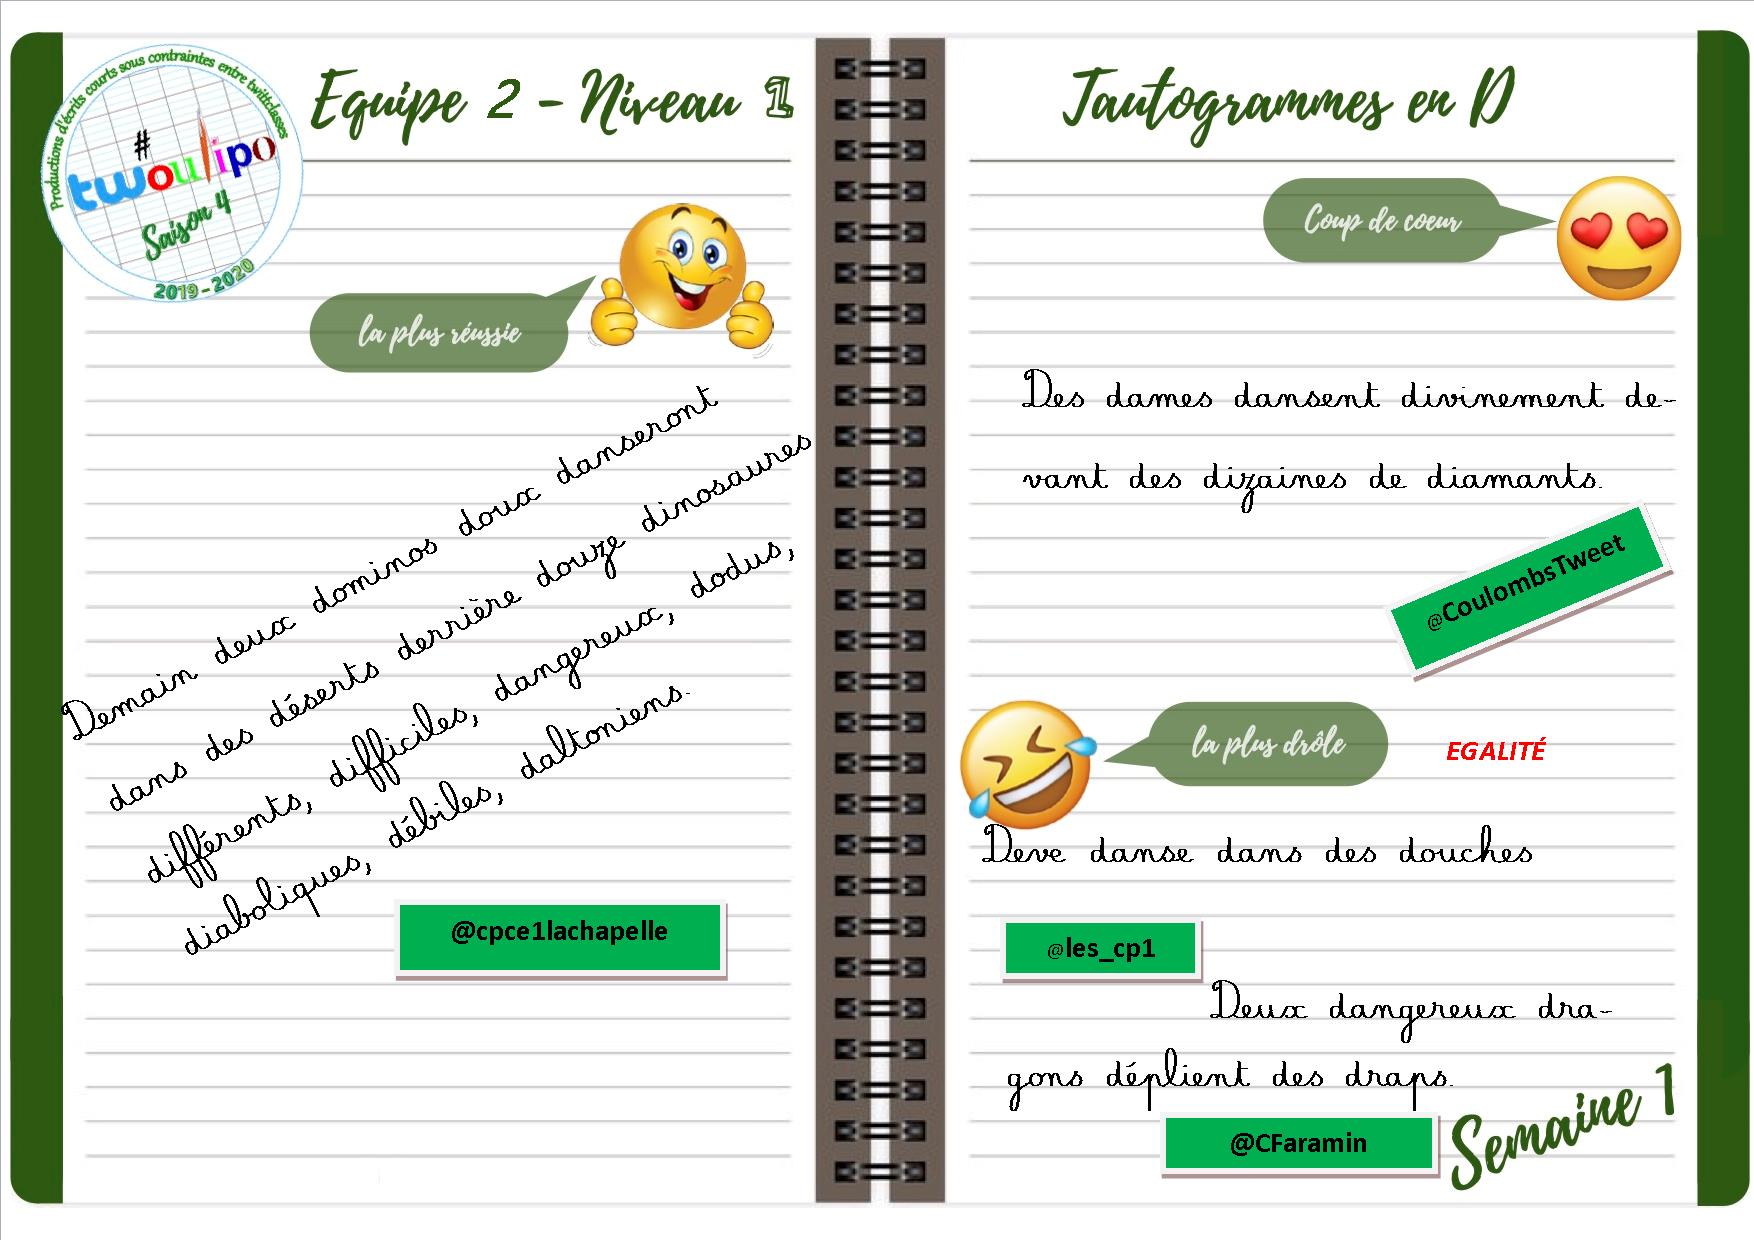 Productions d'écrits courts sous contraintes entre twittclasses
#
twoulipo
Saison 4
2019-2020
Equipe 2 - Niveau 1
la plus réussie
Demain deux dominos doux danseront
dans des déserts derrière douze dinosaures
différents, difficiles, dangereux, dodus,
diaboliques, débiles, daltoniens.
@cpce1lachapelle
Tautogrammes en D
Coup de coeur
Des dames dansent divinement de-
vant des dizaines de diamants.
@CoulombsTweet
la plus drôle
EGALITÉ
Deve danse dans des douches
@les_cp1
Deux dangereux dra-
gons déplient des draps.
@CFaramin
Semaine 1